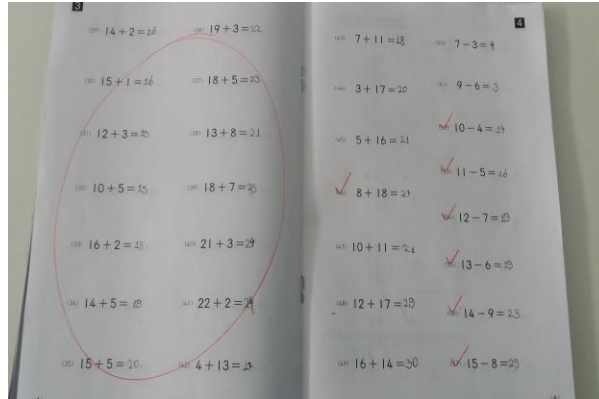 3
(29) 14 + 2 = 16
(30) 15 + 1 = 16
(31) 12 + 3 = 15
(32) 10 + 5 = 15
(33) 16 + 2 =
(34) 14 + 5 = 19
(35) 15 + 5 = 20
(36) 19 + 3 = 22
(37) 18 + 5 = 23
(38) 13 + 8 = 21
(39) 18 + 7 = 25
(40) 21 + 3 = 24
(41) 22 + 2 = 24
(42) 4 + 13 =
4
(43) 7 + 11 = 18
(44) 3 + 17 = 20
(45) 5 + 16 = 21
8 + 18 =
(47) 10 + 11 = 21
(48) 12 + 17 = 29
(49) 16 + 14 = 30
(50) 7 − 3 = 4
(51) 9 − 6 = 3
10 − 4 =
11 − 5 = 16
12 − 7 = 19
13 − 6 = 19
14 − 9 = 23
15 − 8 =